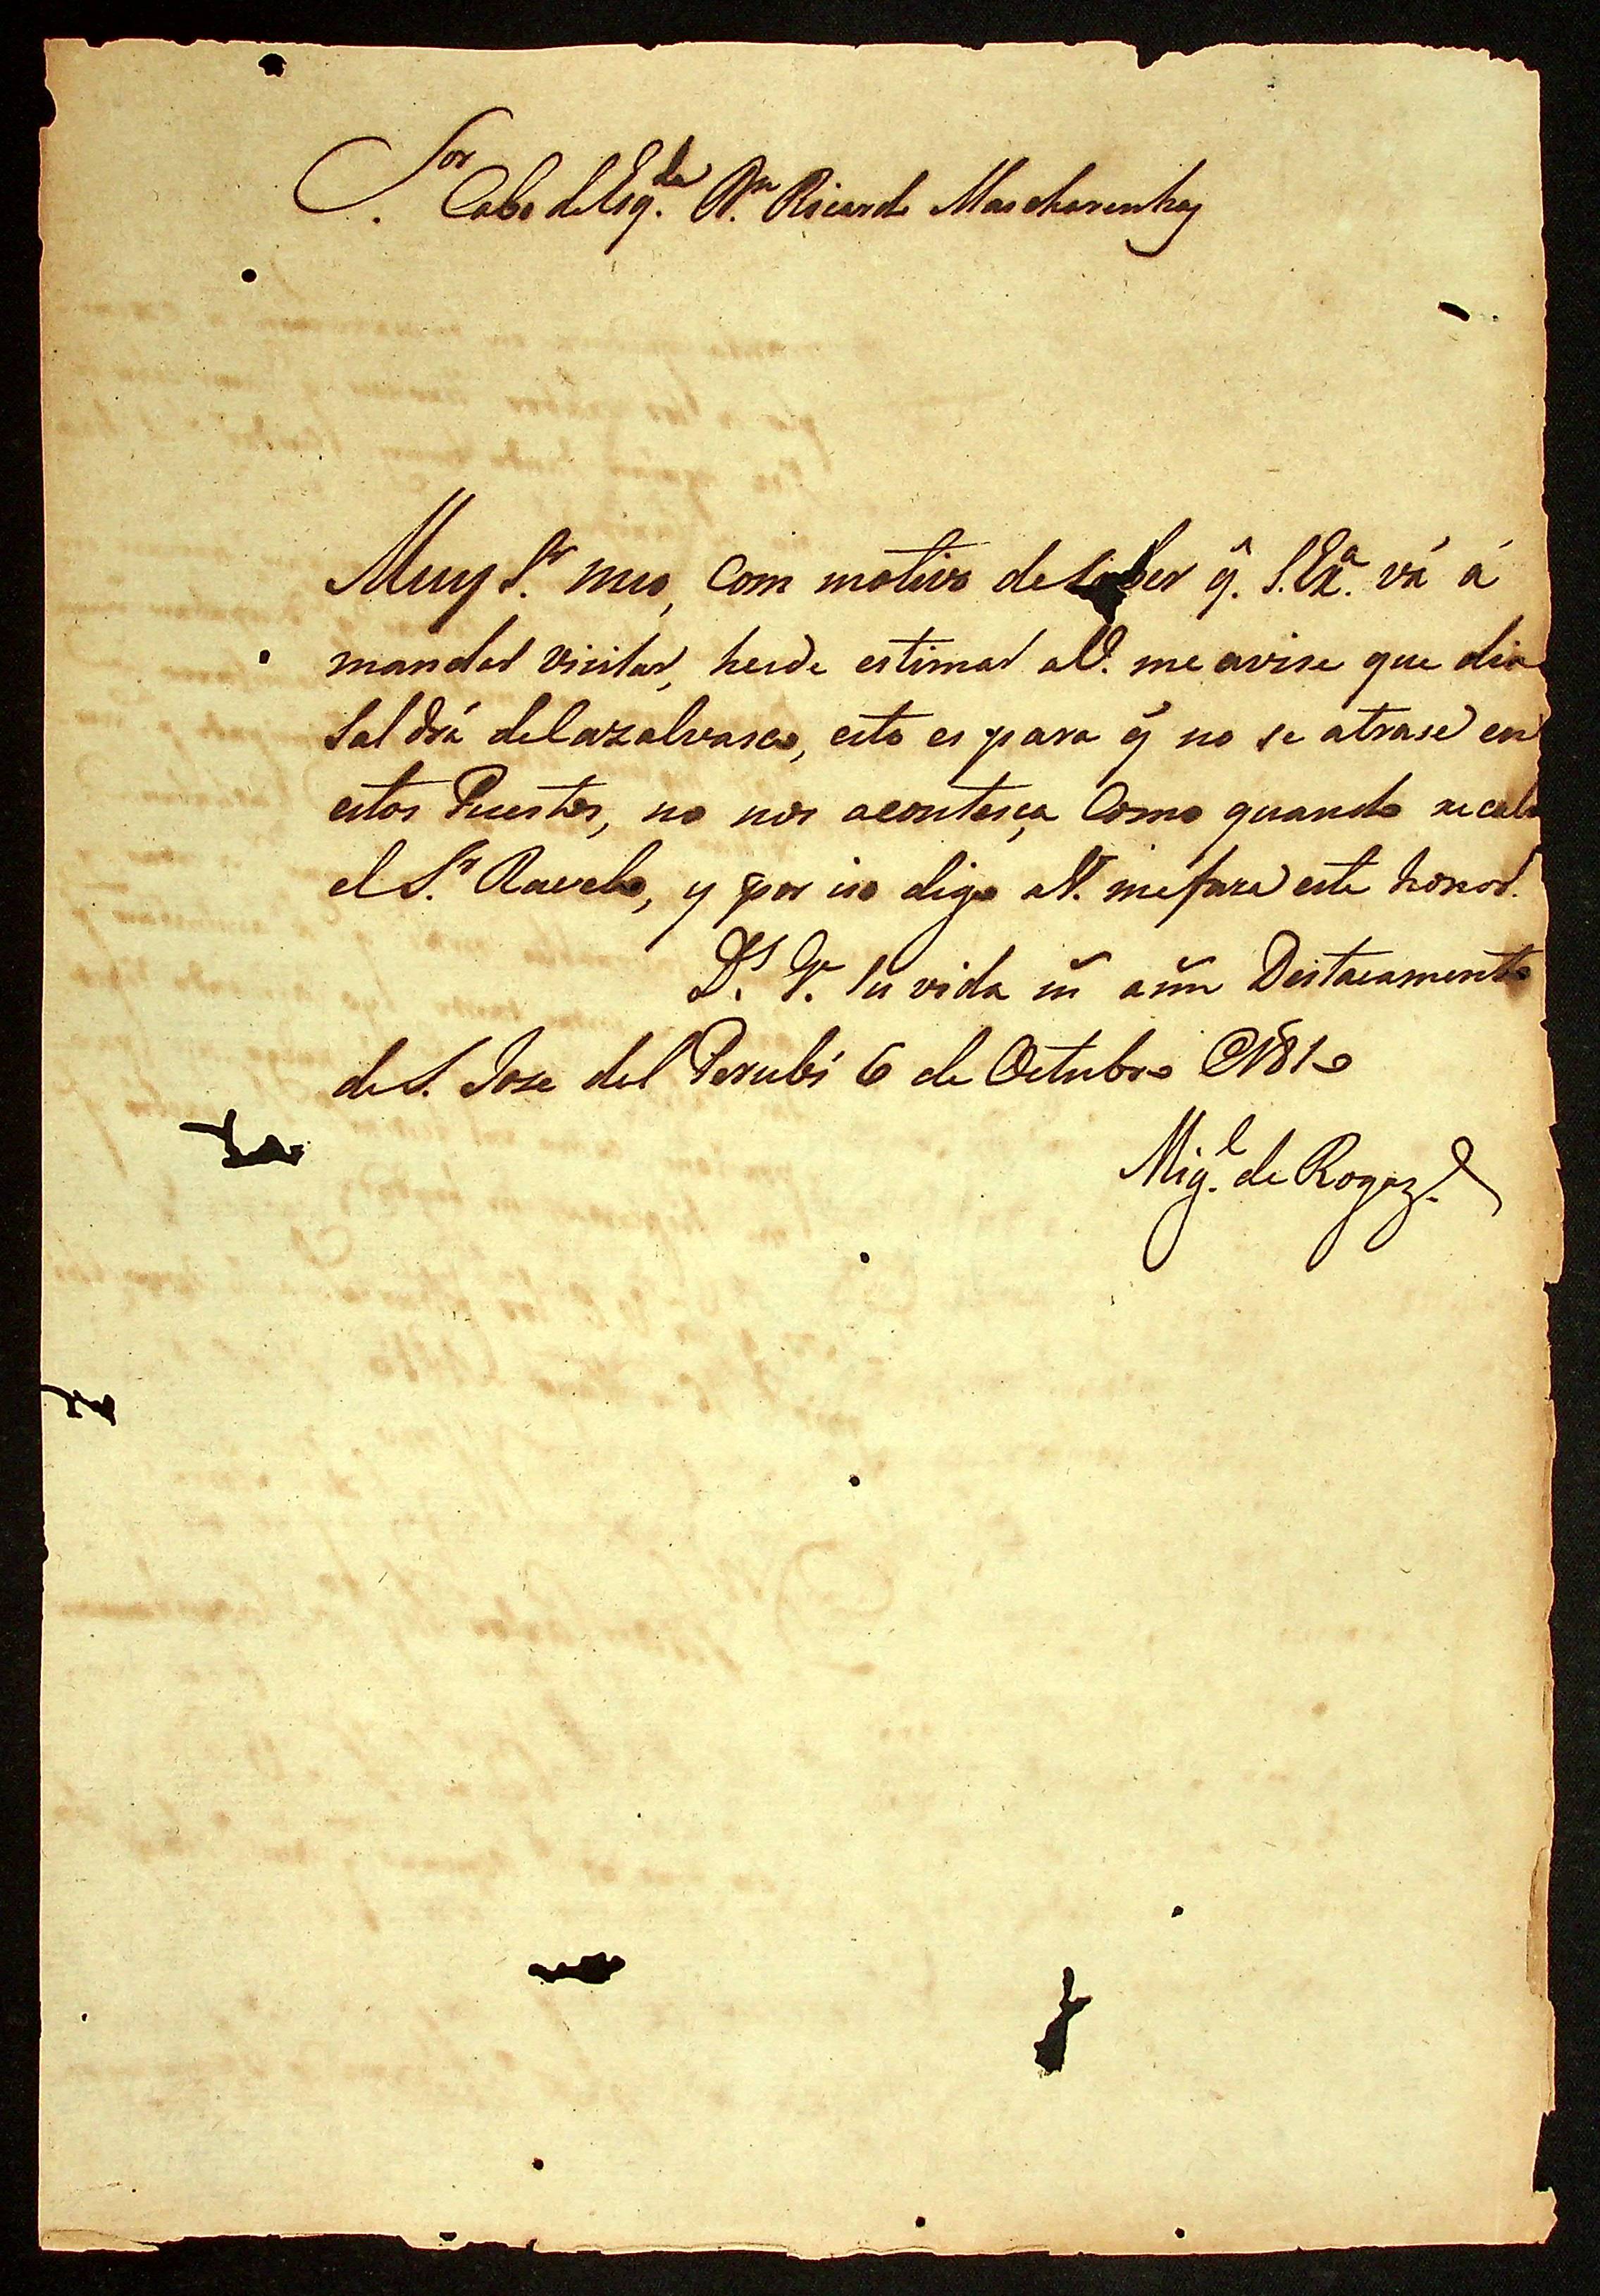 Sor
Cabo de Esq.da Dn. Ricardo Mascharenhas
Muy Sr. mio, Com motivo de saber q̂. S. Exa. vá á
mandar visitar, heide estimar a V. me avise que dia
Saldrá esto es para q̃ no se atrase en
estos Puestos, no nos acontesça Como quando
el Sr. Ravelo, y por iso digo a V. me faza este honor.
Ds. G. su vida ms̃ añs Destacamento
de S. Jose del Perubí 6 de Octubro 181
Migl. de Rogaz.